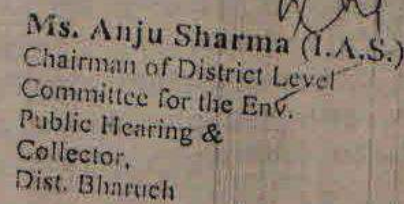 Ms. Anju Sharma (I.A.S.)
Chairman of District Level
Committee for the Env.
Public Hearing &
Collector,
Dist. Bharuch